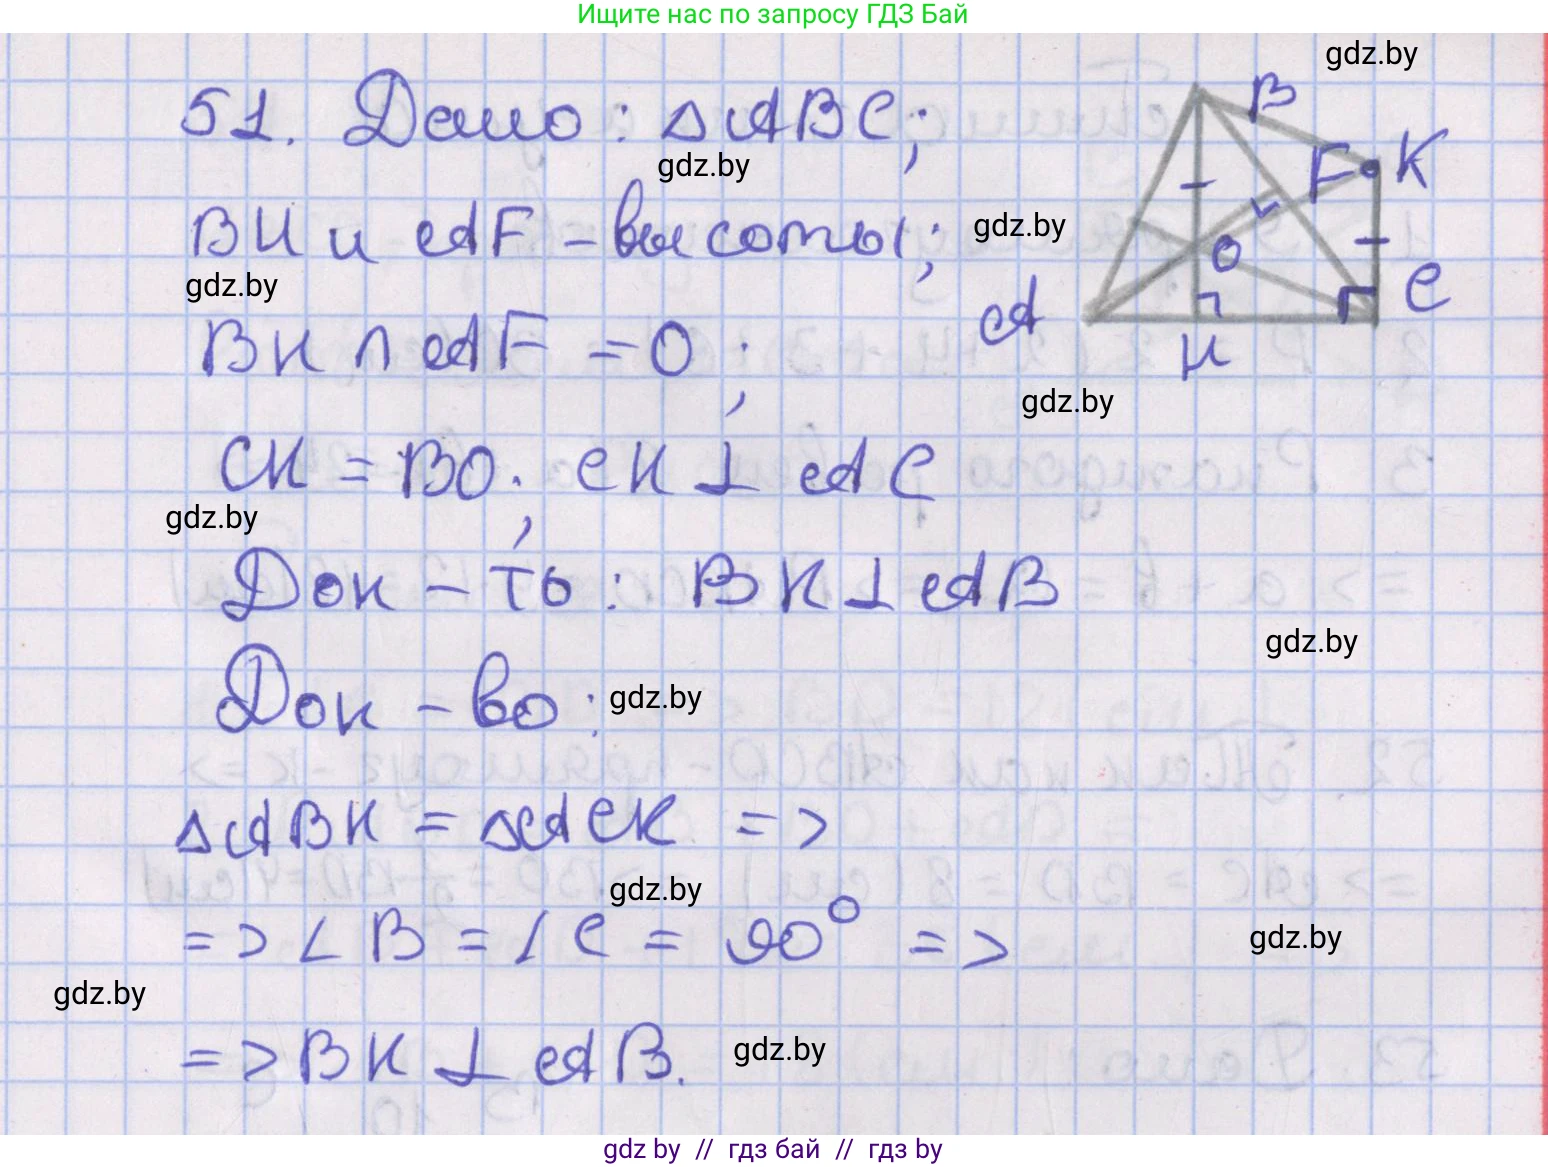 Ищите нас по запросу ГДЗ Бай
gdz.by
51. Дано: △ABC;
B
F K
gdz.by
BH и AF - высоты;
gdz.by
O
gdz.by
C
A
H
BH ∩ AF = O;
gdz.by
CK = BO; CK ⊥ AC
gdz.by
Док-ть: BK ⊥ AB
gdz.by
Док-во:
gdz.by
△ABK = △ACK =>
gdz.by
=> ∠B = ∠C = 90° =>
gdz.by
gdz.by
=> BK ⊥ AB.
gdz.by
gdz by // гдз бай // gdz by